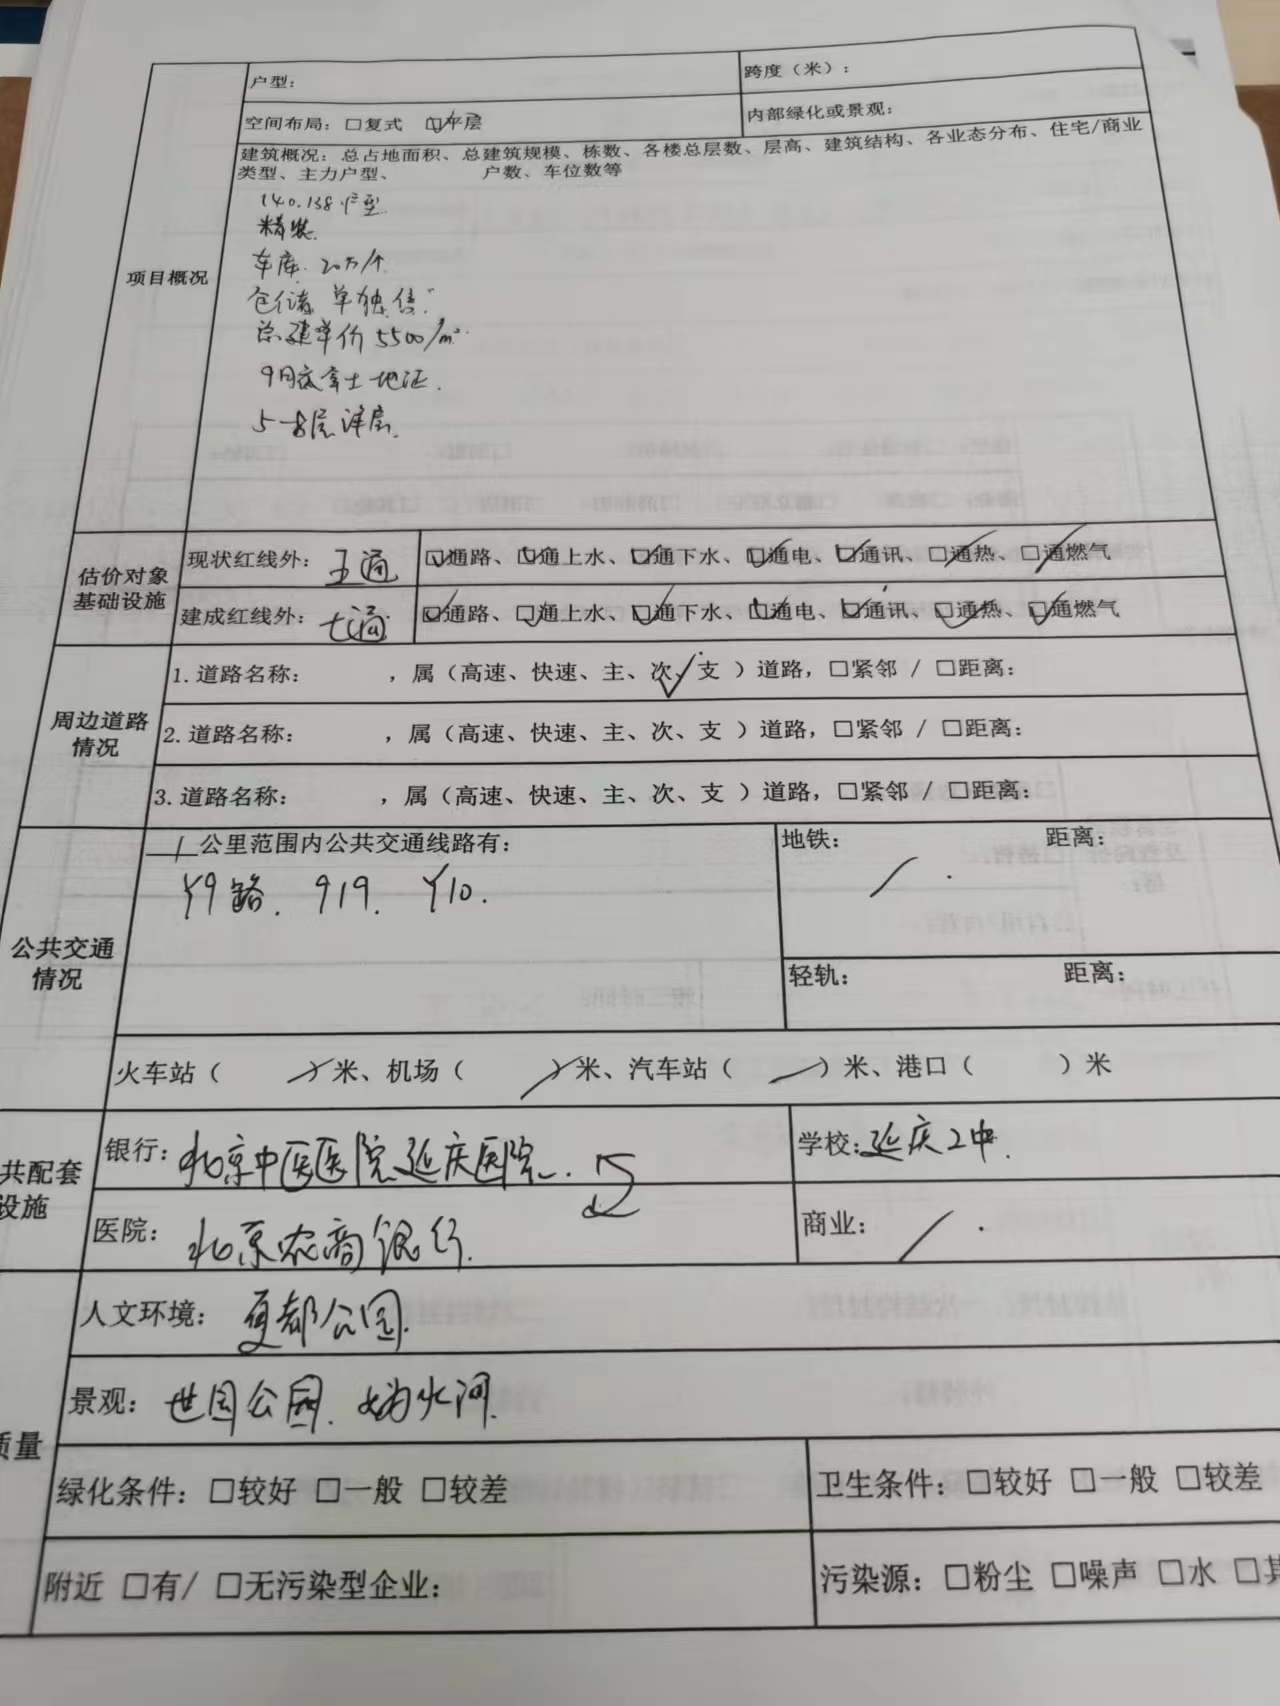 户型：
跨度（米）：
空间布局：□复式 ☑平层
内部绿化或景观：
建筑概况：总占地面积、总建筑规模、栋数、各楼总层数、层高、建筑结构、各业态分布、住宅/商业
类型、主力户型、 户数、车位数等
140.138户型.
精装.
车库.20万/个
仓储 单独售.
建单价5500/m²
9月底拿土地证.
5-8层洋房.
项目概况
估价对象
基础设施
现状红线外：五通
☑通路、☑通上水、☑通下水、☑通电、☑通讯、□通热、□通燃气
建成红线外：七通
☑通路、☑通上水、☑通下水、☑通电、☑通讯、☑通热、☑通燃气
周边道路
情况
1.道路名称： ，属（高速、快速、主、次、支✓）道路，□紧邻 / □距离：
2.道路名称： ，属（高速、快速、主、次、支 ）道路，□紧邻 / □距离：
3.道路名称： ，属（高速、快速、主、次、支 ）道路，□紧邻 / □距离：
公共交通
情况
1公里范围内公共交通线路有：
Y9路.919.Y10.
地铁： 距离：
/
轻轨： 距离：
火车站（ / ）米、机场（ / ）米、汽车站（ / ）米、港口（ ）米
共配套
设施
银行：北京中医医院延庆医院.
学校：延庆二中.
医院：北京农商银行.
商业：/
质量
人文环境：夏都公园.
景观：世园公园.妫水河.
绿化条件：□较好 □一般 □较差
卫生条件：□较好 □一般 □较差
附近 □有/ □无污染型企业：
污染源：□粉尘 □噪声 □水 □其